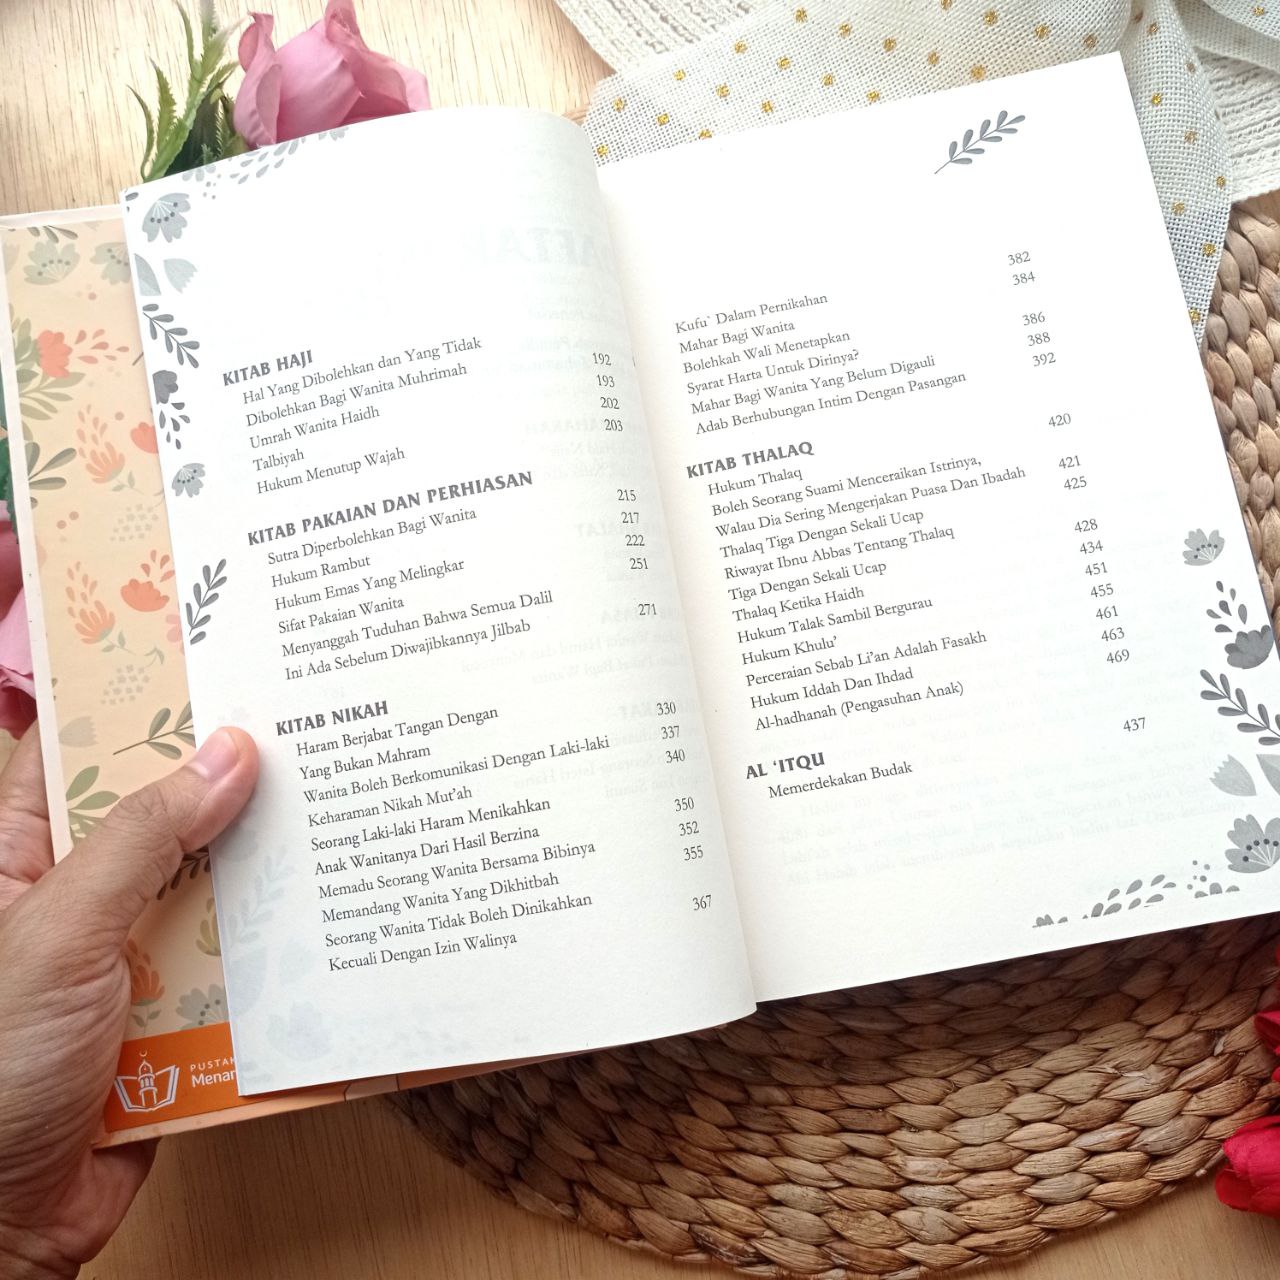 KITAB HAJI
Hal Yang Dibolehkan dan Yang Tidak
Dibolehkan Bagi Wanita Muhrimah 192
Umrah Wanita Haidh 193
Talbiyah 202
Hukum Menutup Wajah 203
KITAB PAKAIAN DAN PERHIASAN
Sutra Diperbolehkan Bagi Wanita 215
Hukum Rambut 217
Hukum Emas Yang Melingkar 222
Sifat Pakaian Wanita 251
Menyanggah Tuduhan Bahwa Semua Dalil
Ini Ada Sebelum Diwajibkannya Jilbab 271
KITAB NIKAH
Haram Berjabat Tangan Dengan
Yang Bukan Mahram 330
Wanita Boleh Berkomunikasi Dengan Laki-laki 337
Keharaman Nikah Mut'ah 340
Seorang Laki-laki Haram Menikahkan
Anak Wanitanya Dari Hasil Berzina 350
Memadu Seorang Wanita Bersama Bibinya 352
Memandang Wanita Yang Dikhitbah 355
Seorang Wanita Tidak Boleh Dinikahkan
Kecuali Dengan Izin Walinya 367
Kufu` Dalam Pernikahan 382
Mahar Bagi Wanita 384
Bolehkah Wali Menetapkan
Syarat Harta Untuk Dirinya? 386
Mahar Bagi Wanita Yang Belum Digauli 388
Adab Berhubungan Intim Dengan Pasangan 392
KITAB THALAQ
Hukum Thalaq 420
Boleh Seorang Suami Menceraikan Istrinya,
Walau Dia Sering Mengerjakan Puasa Dan Ibadah 421
Thalaq Tiga Dengan Sekali Ucap 425
Riwayat Ibnu Abbas Tentang Thalaq
Tiga Dengan Sekali Ucap 428
Thalaq Ketika Haidh 434
Hukum Talak Sambil Bergurau 451
Hukum Khulu' 455
Perceraian Sebab Li'an Adalah Fasakh 461
Hukum Iddah Dan Ihdad 463
Al-hadhanah (Pengasuhan Anak) 469
AL 'ITQU
Memerdekakan Budak 437